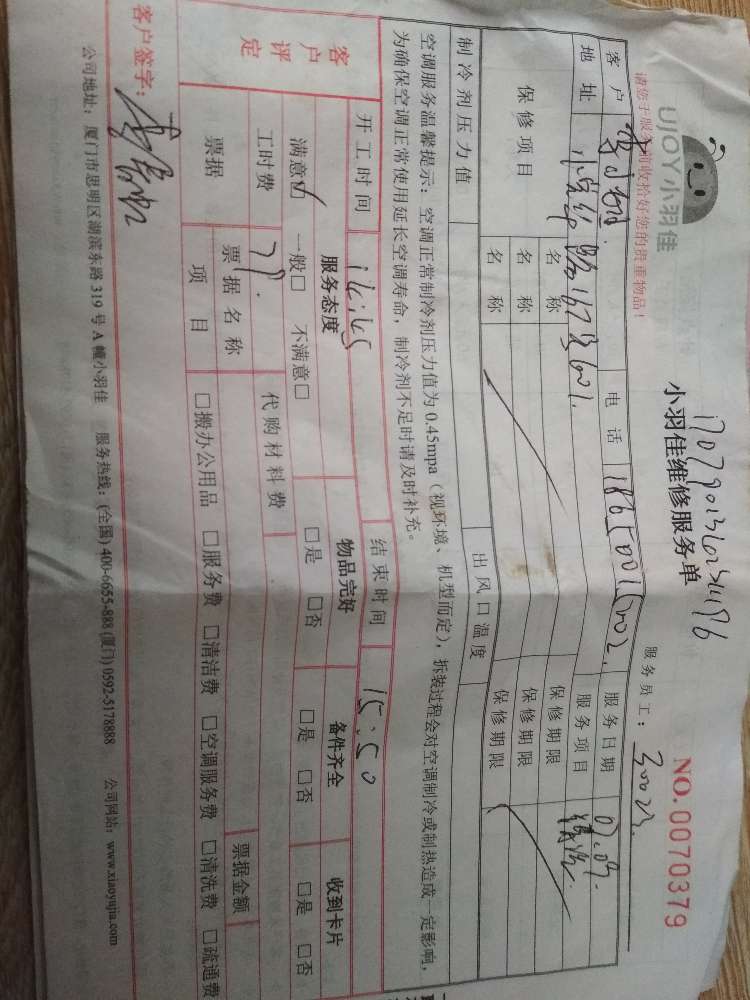 UJOY小羽佳
小羽佳维修服务单
NO. 0070379
请您于服务前收拾好您的贵重物品！
服务员工：30023
客户
电话
服务日期 07.09.
地址
服务项目
保修项目 名称 保修期限
名称 保修期限
名称 保修期限
制冷剂压力值 出风口温度
空调服务温馨提示：空调正常制冷剂压力值为0.45mpa（视环境、机型而定），拆装过程会对空调制冷或制热造成一定影响，
为确保空调正常使用延长空调寿命，制冷剂不足时请及时补充。
开工时间 14:45 结束时间 15:50
客户评定 服务态度 物品完好 备件齐全 收到卡片
满意☑ 一般□ 不满意□ □是 □否 □是 □否 □是 □否
工时费 79. 代购材料费
票据 票据名称 票据金额
项目 □搬办公用品 □服务费 □清洁费 □空调服务费 □清洗费 □疏通费
客户签字：
公司地址：厦门市思明区湖滨东路319号A幢小羽佳 服务热线：(全国) 400-6655-888 (厦门) 0592-5178888 公司网站：www.xiaoyujia.com